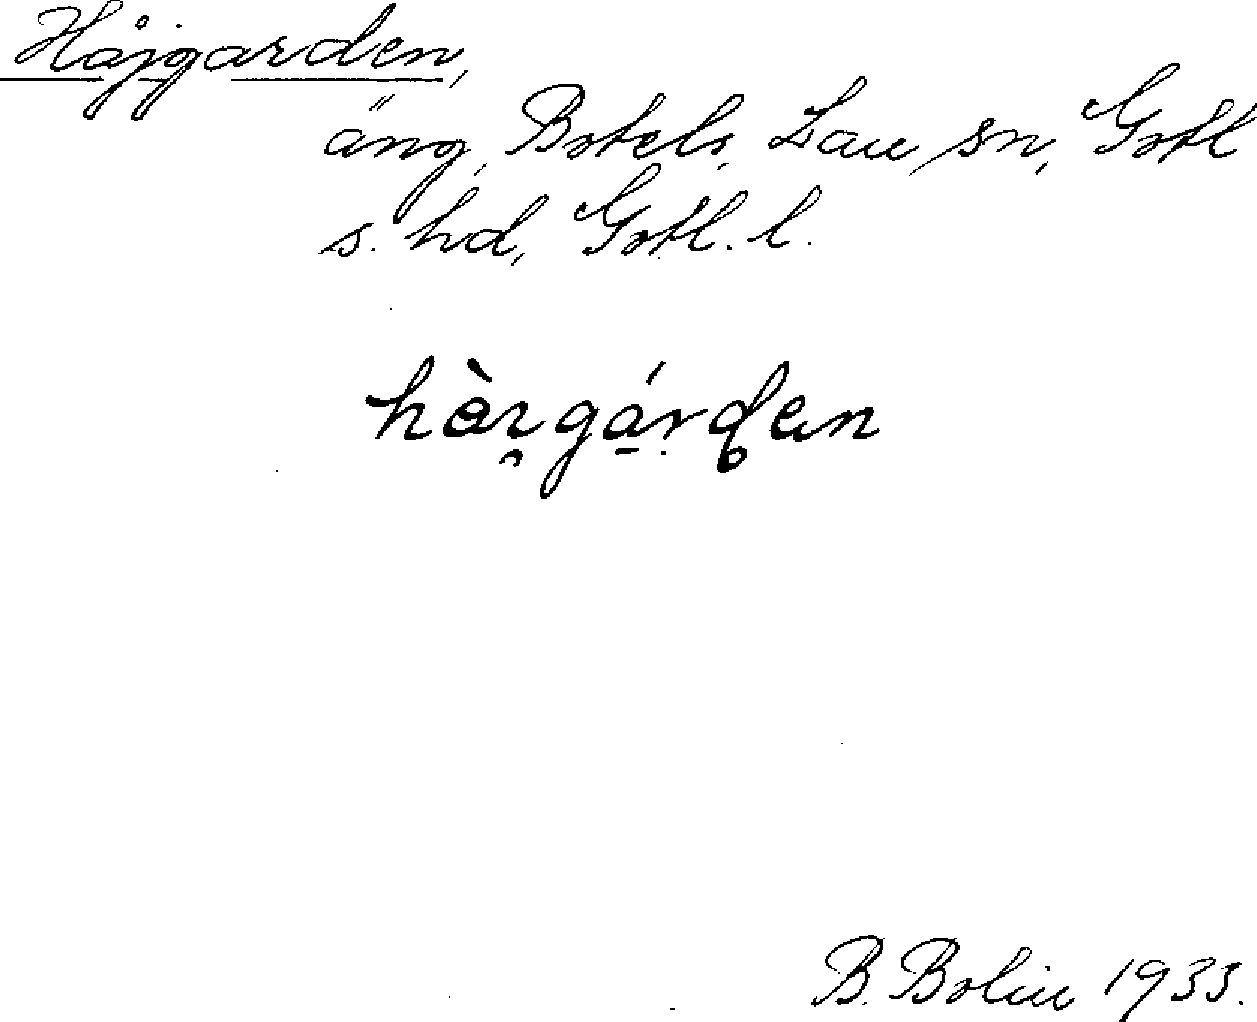 Håjgarden,
äng, Botels, Lau sn, Gotl
s. hd, Gotl. l.
B. Bolin 1933.